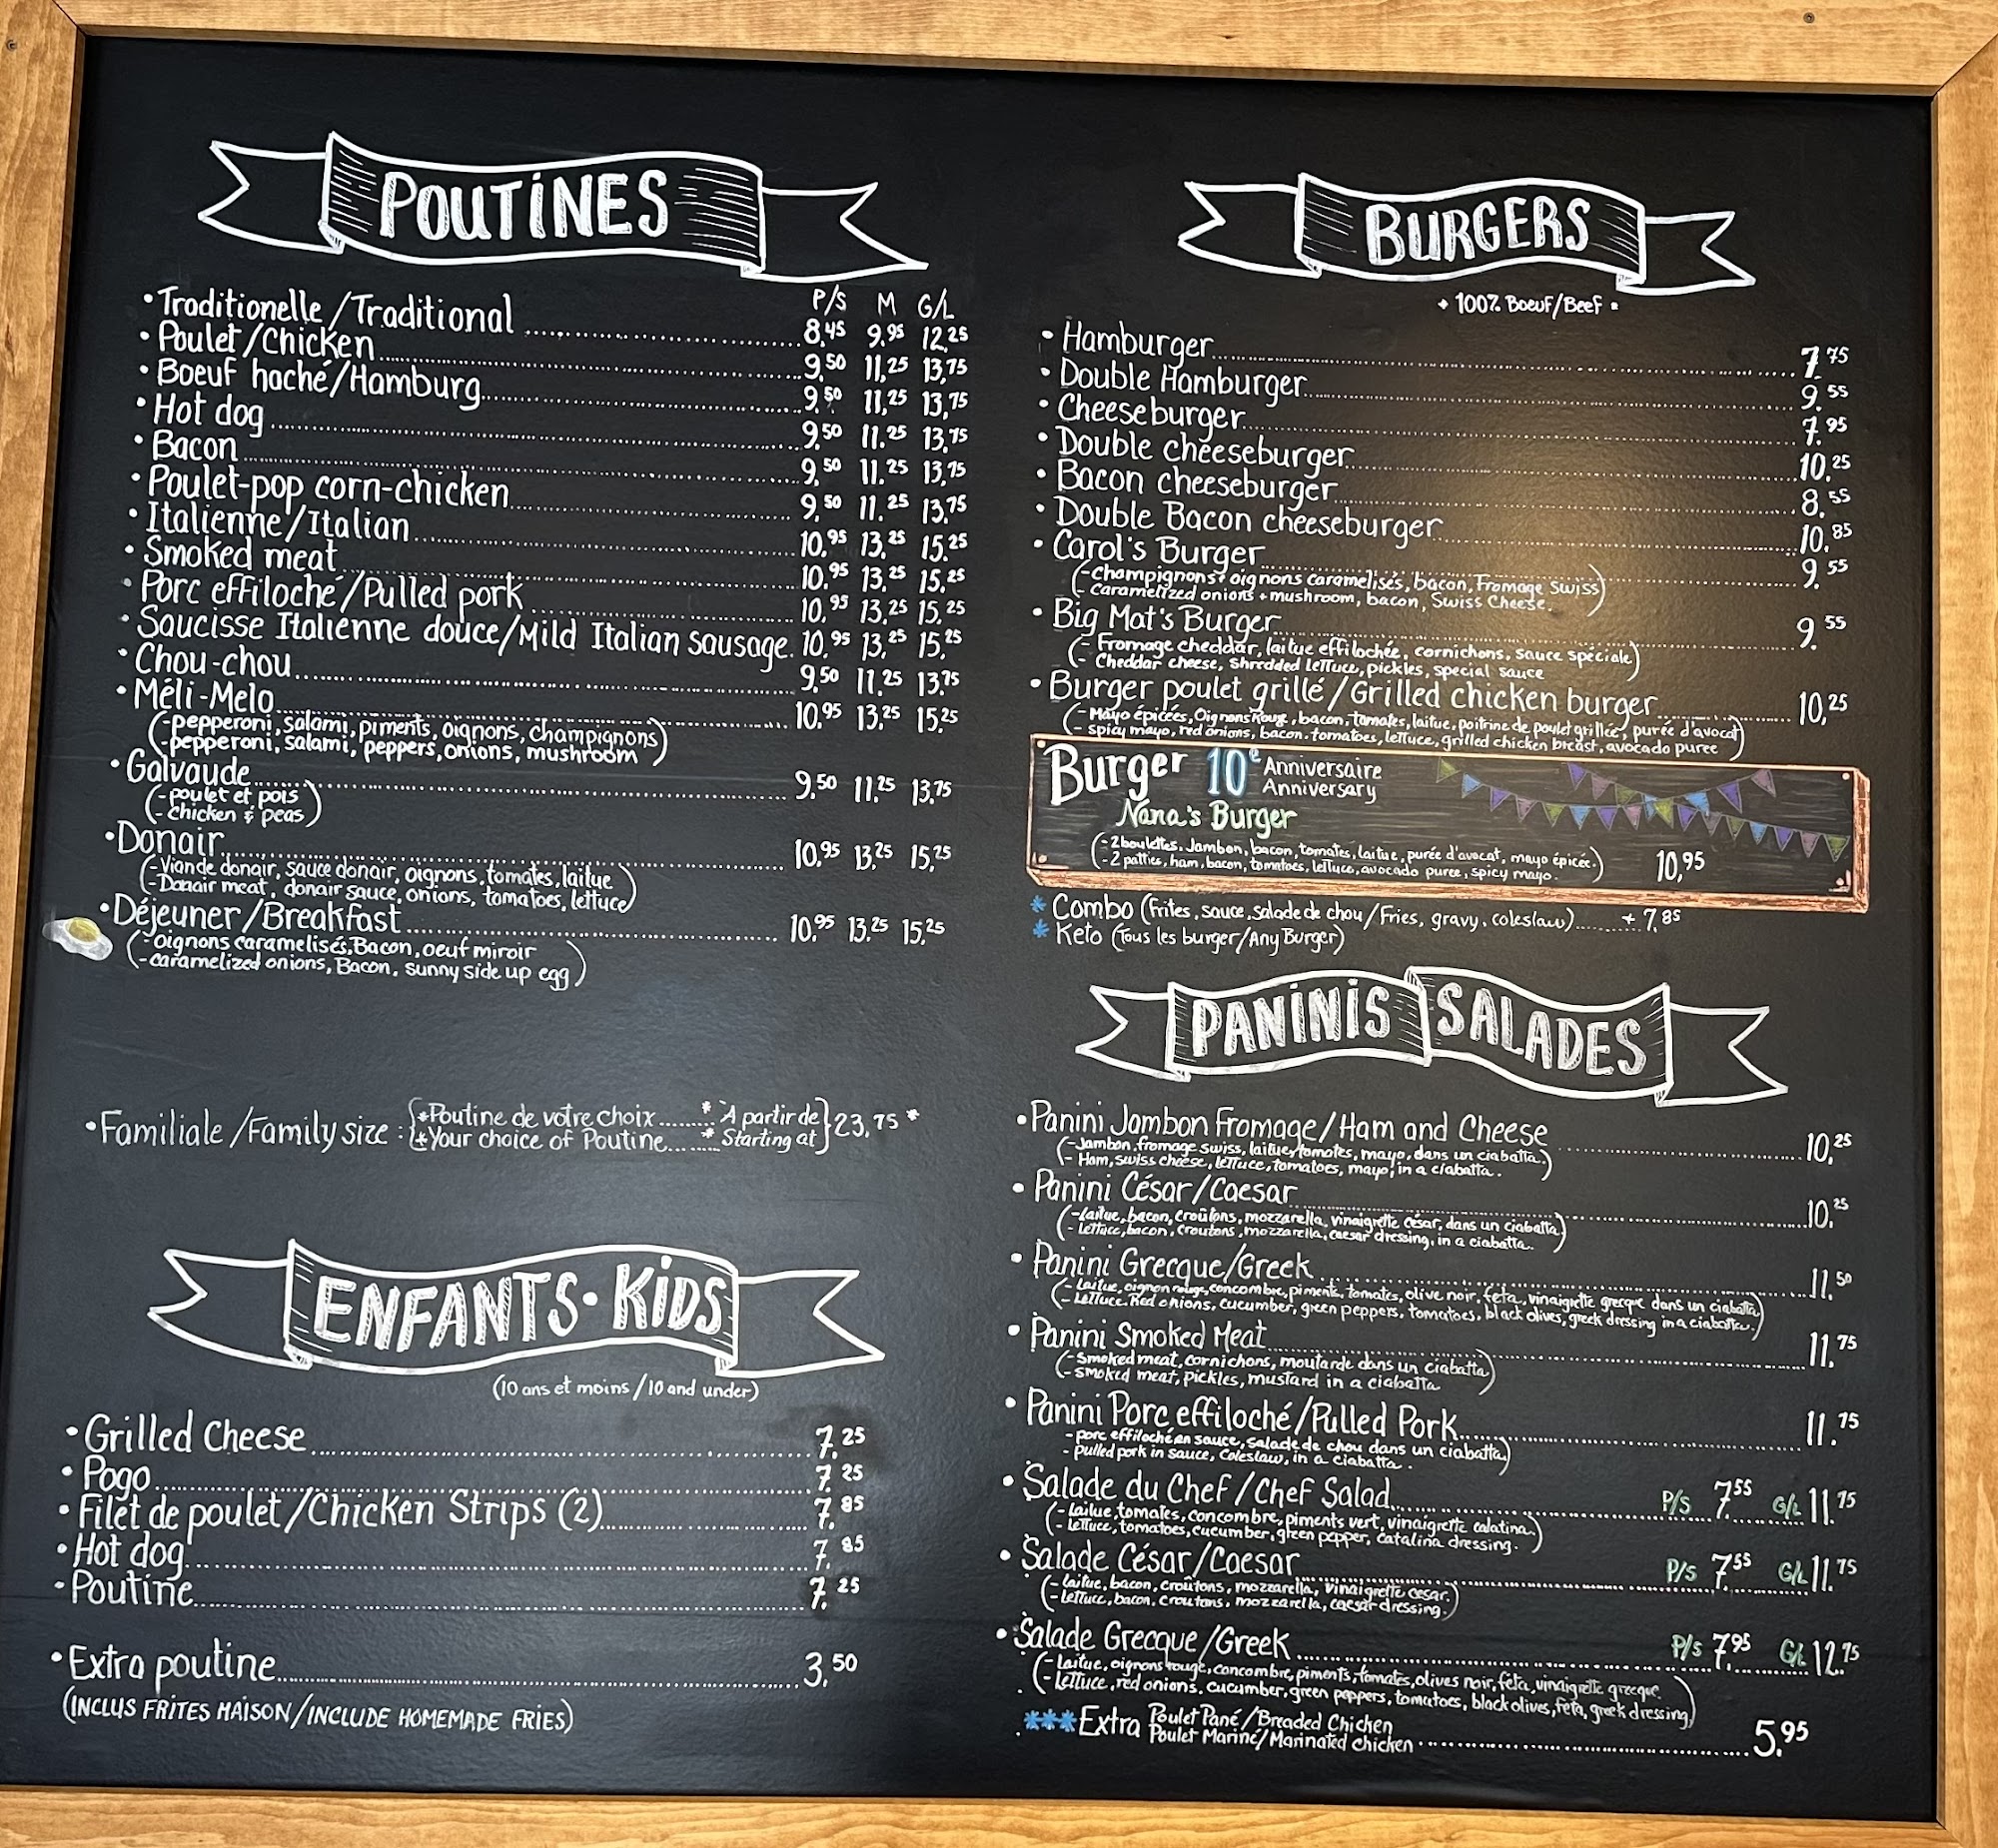 POUTINES
P/S M G/L
•Traditionelle/Traditional 8,45 9,95 12,25
•Poulet/Chicken 9,50 11,25 13,75
•Boeuf haché/Hamburg 9,50 11,25 13,75
•Hot dog 9,50 11.25 13,75
•Bacon 9,50 11.25 13,75
•Poulet-pop corn-chicken 9,50 11.25 13,75
•Italienne/Italian 10,95 13,25 15,25
•Smoked meat 10,95 13,25 15,25
•Porc effiloché/Pulled pork 10,95 13,25 15,25
•Saucisse Italienne douce/Mild Italian sausage. 10,95 13,25 15,25
•Chou-chou 9,50 11,25 13,75
•Méli-Melo 10,95 13,25 15,25
(-pepperoni, salami, piments, oignons, champignons)
(-pepperoni, salami, peppers, onions, mushroom)
•Galvaude 9,50 11,25 13,75
(-poulet et pois)
(-chicken & peas)
•Donair 10,95 13,25 15,25
(-Viande donair, sauce donair, oignons, tomates, laitue)
(-Donair meat, donair sauce, onions, tomatoes, lettuce)
•Déjeuner/Breakfast 10,95 13,25 15,25
(-oignons caramelisés, Bacon, oeuf miroir
-caramelized onions, Bacon, sunny side up egg)
•Familiale/Family size: {*Poutine de votre choix........* À partir de} 23,75 *
{*Your choice of Poutine.........* Starting at}
ENFANTS·KIDS
(10 ans et moins/10 and under)
•Grilled Cheese 7,25
•Pogo 7,25
•Filet de poulet/Chicken Strips (2) 7,85
•Hot dog 7,85
•Poutine 7,25
•Extra poutine 3,50
(INCLUS FRITES MAISON/INCLUDE HOMEMADE FRIES)
BURGERS
* 100% Boeuf/Beef *
•Hamburger 7,75
•Double Hamburger 9,55
•Cheeseburger 7,95
•Double cheeseburger 10,25
•Bacon cheeseburger 8,55
•Double Bacon cheeseburger 10,85
•Carol's Burger 9,55
(-Champignons+oignons caramelisés, bacon, Fromage Swiss)
(-Caramelized onions+mushroom, bacon, Swiss Cheese.)
•Big Mat's Burger 9,55
(-Fromage cheddar, laitue effilochée, cornichons, sauce spéciale)
(-Cheddar cheese, Shredded lettuce, pickles, special sauce
•Burger poulet grillé/Grilled chicken burger 10,25
(-Mayo épicées, Oignons Rouge, bacon, tomates, laitue, poitrine de poulet grillée, purée d'avocat)
(-spicy mayo, red onions, bacon, tomatoes, lettuce, grilled chicken breast, avocado puree)
Burger 10e Anniversaire
Anniversary
Nana's Burger
(-2 boulettes. Jambon, bacon, tomates, laitue, purée d'avocat, mayo épicée.)
(-2 patties, ham, bacon, tomatoes, lettuce, avocado puree, spicy mayo.) 10,95
* Combo (Frites, sauce, salade de chou/Fries, gravy, coleslaw) + 7,85
* Keto (Tous les burger/Any Burger)
PANINIS SALADES
•Panini Jambon Fromage/Ham and Cheese 10,25
(-Jambon, fromage swiss, laitue, tomates, mayo, dans un ciabatta.)
(-Ham, swiss cheese, lettuce, tomatoes, mayo, in a ciabatta.)
•Panini César/Caesar 10,25
(-laitue, bacon, croûtons, mozzarella, vinaigrette césar, dans un ciabatta)
(-lettuce, bacon, croutons, mozzarella, caesar dressing, in a ciabatta.
•Panini Grecque/Greek 11,50
(-Laitue, oignon rouge, concombre, piments, tomates, olive noir, feta, vinaigrette grecque dans un ciabatta)
(-Lettuce. Red onions, cucumber, green peppers, tomatoes, black olives, greek dressing in a ciabatta.)
•Panini Smoked Meat 11,75
(-Smoked meat, cornichons, moutarde dans un ciabatta)
(-smoked meat, pickles, mustard in a ciabatta
•Panini Porc effiloché/Pulled Pork 11,75
-porc effiloché en sauce, salade de chou dans un ciabatta)
-pulled pork in sauce, Coleslaw, in a ciabatta.
•Salade du Chef/Chef Salad P/S 7,55 G/L 11,75
(-laitue, tomates, concombre, piments vert, vinaigrette catatina.)
(-lettuce, tomatoes, cucumber, green pepper, Catalina dressing.)
•Salade César/Caesar P/S 7,55 G/L 11,75
(-laitue, bacon, croûtons, mozzarella, vinaigrette cesar.)
(-lettuce, bacon, croutons, mozzarella, caesar dressing.)
•Salade Grecque/Greek P/S 7,95 G/L 12,75
(-Laitue, oignons rouge, concombre, piments, tomates, olives noir, feta, vinaigrette grecque.
(-Lettuce, red onions, cucumber, green peppers, tomatoes, black olives, feta, greek dressing)
***Extra Poulet Pané/Breaded Chicken
Poulet Mariné/Marinated chicken 5,95